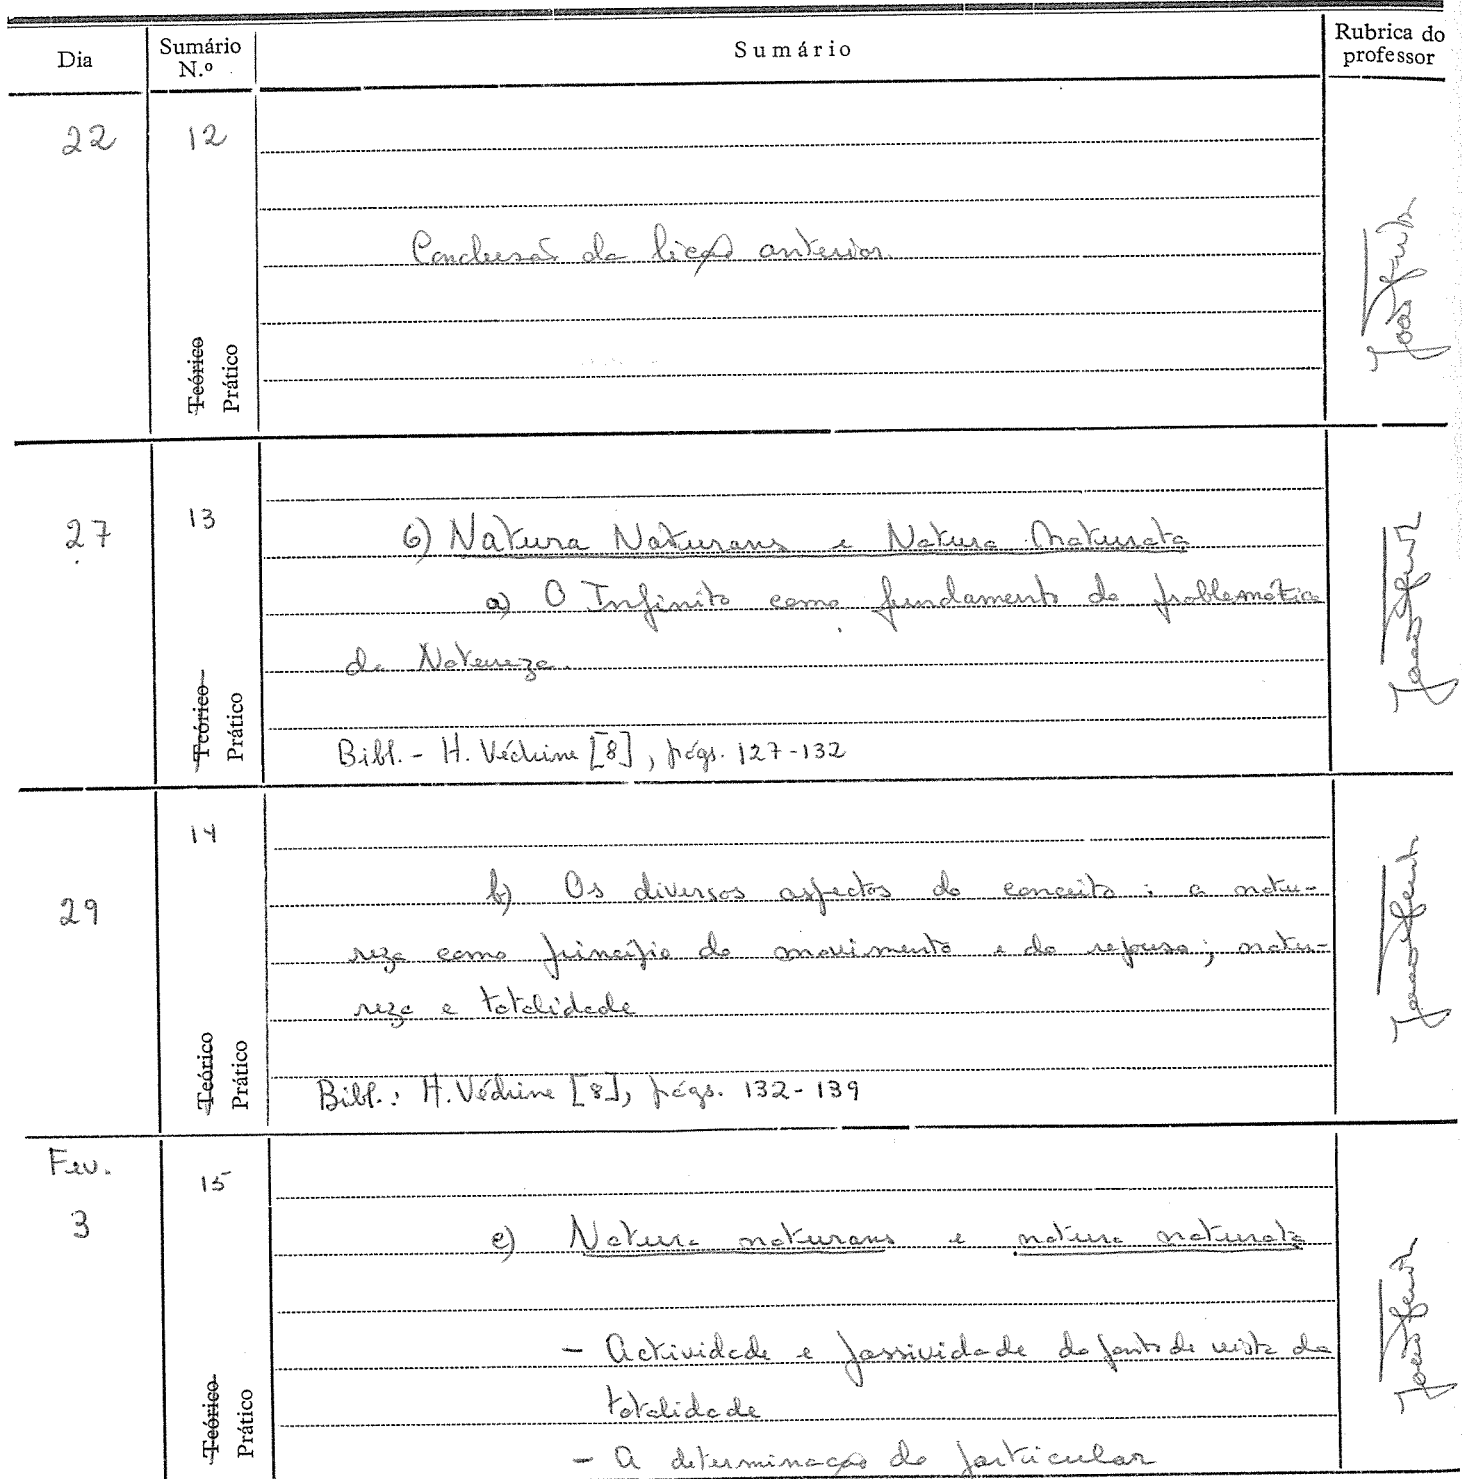 Dia Sumário N.º Sumário Rubrica do professor
22 12
Conclusão da lição anterior.
Teórico
Prático
27 13
6) Natura Naturans e Natura Naturata
a) O Infinito como fundamento da problemática
da Natureza.
Bibl. - H. Védrine [8], págs. 127-132
Teórico
Prático
29 14
b) Os diversos aspectos do conceito: a natu-
reza como princípio do movimento e do repouso; natu-
reza e totalidade
Bibl.: H. Védrine [8], págs. 132-139
Teórico
Prático
Fev.
3 15
c) Natura naturans e natura naturata
- Actividade e passividade do ponto de vista da
totalidade
- A determinação do particular
Teórico
Prático